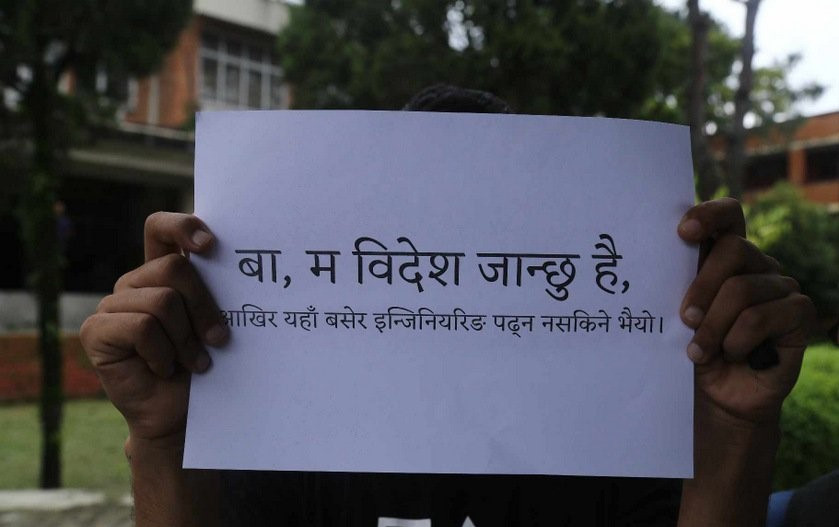 बा, म विदेश जान्छु है,
आखिर यहाँ बसेर इन्जिनियरिङ पढ्न नसकिने भैयो।